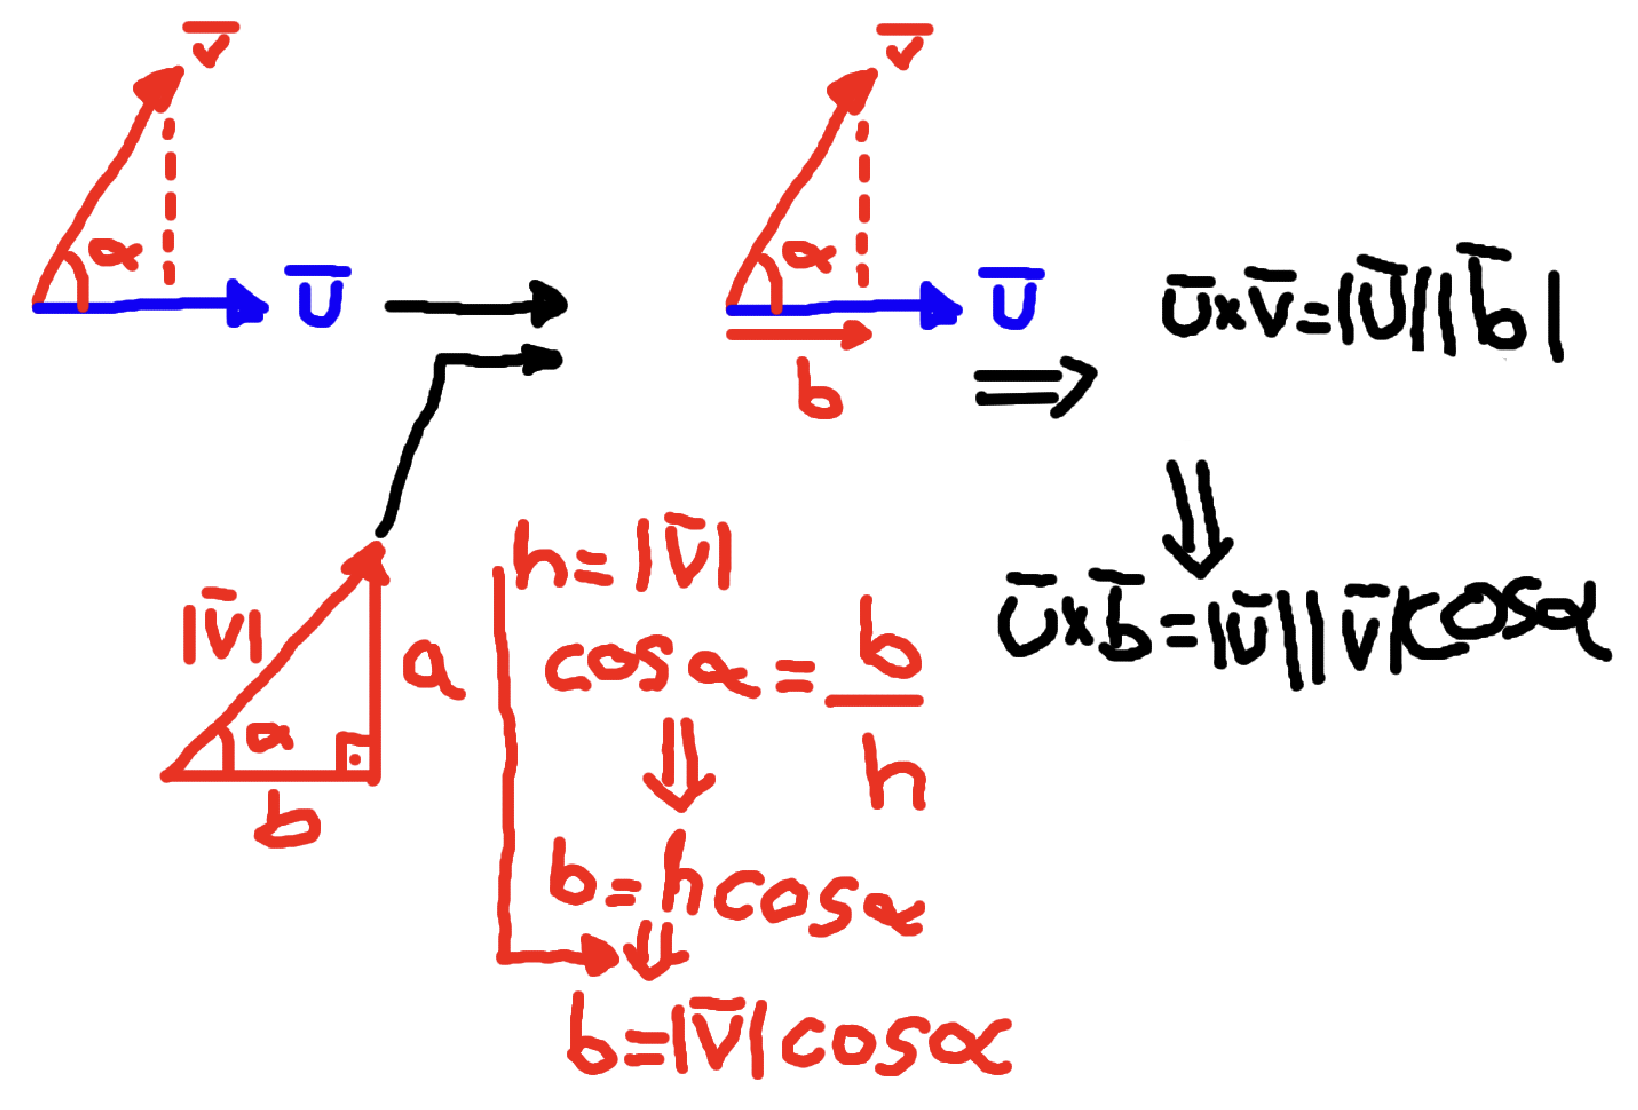 v̅
α
u̅
v̅
α
u̅
b
u̅×v̅=|u̅||b̅|
u̅×b̅=|u̅||v̅|cosα
|v̅|
a
α
b
h=|v̅|
cosα=b/h
b=hcosα
b=|v̅|cosα